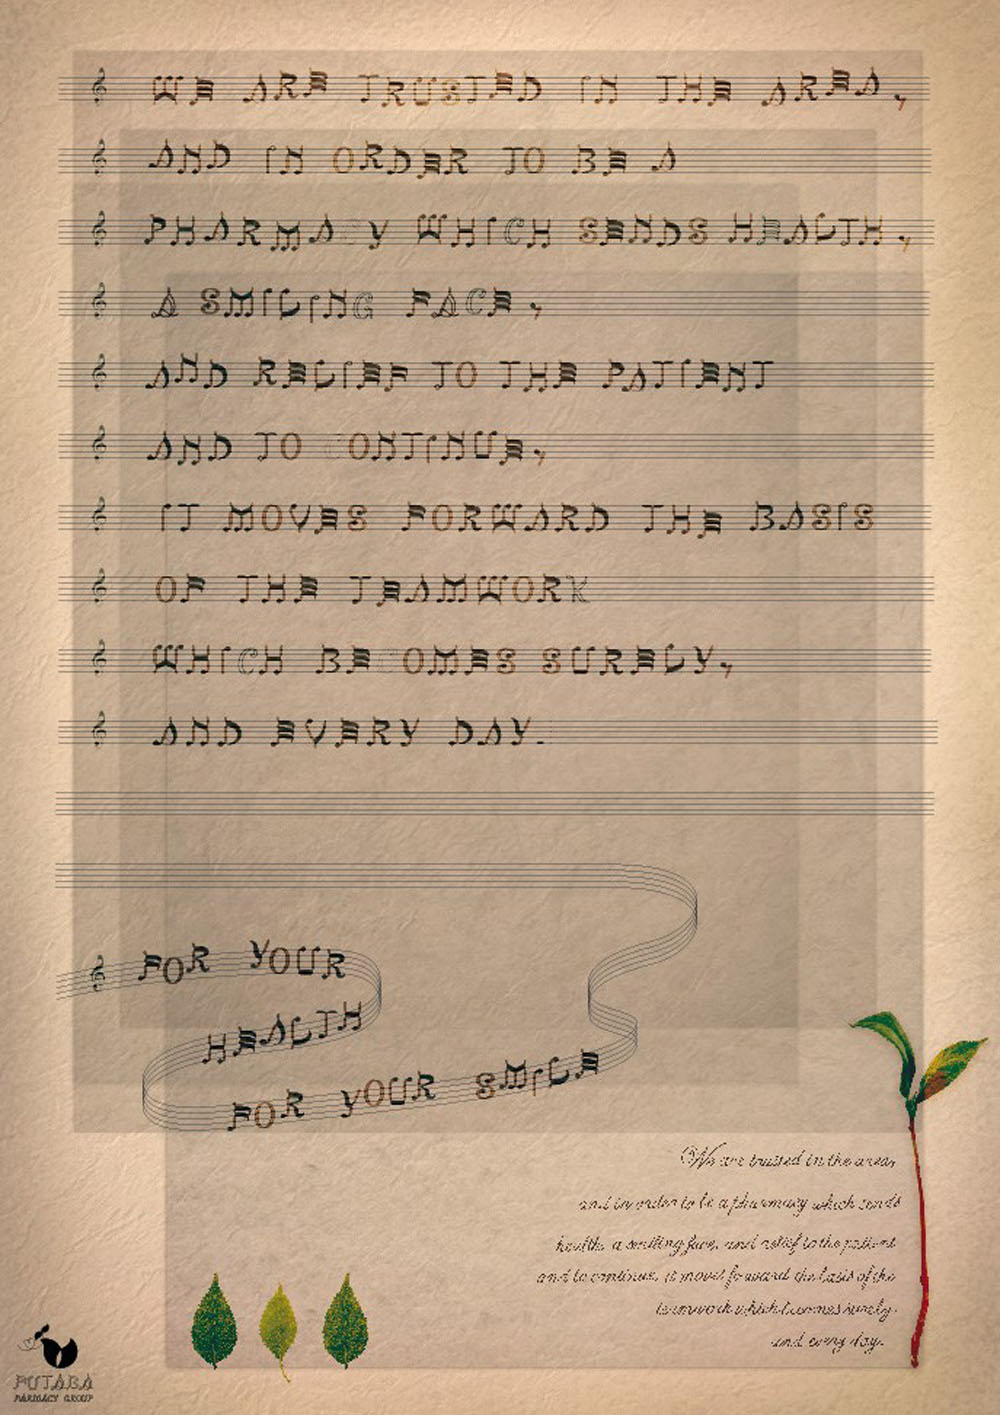 WE ARE TRUSTED IN THE AREA,
AND IN ORDER TO BE A
PHARMACY WHICH SENDS HEALTH,
A SMILING FACE,
AND RELIEF TO THE PATIENT
AND TO CONTINUE,
IT MOVES FORWARD THE BASIS
OF THE TEAMWORK
WHICH BECOMES SURELY,
AND EVERY DAY.
FOR YOUR
HEALTH
FOR YOUR SMILE
We are trusted in the area,
and in order to be a pharmacy which sends
health, a smiling face, and relief to the patient
and to continue, it moves forward the basis of the
teamwork which becomes surely,
and every day.
FUTABA
PHARMACY GROUP